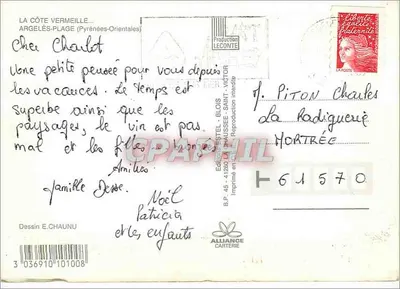 LA CÔTE VERMEILLE...
ARGELÈS-PLAGE (Pyrénées-Orientales)
Cher Charlot
Une petite pensée pour vous depuis
les vacances. Le temps est
superbe ainsi que les
paysages, le vin est pas
mal et les filles bronzées
Amitiés
famille
Noël
Patricia
et les enfants
Dessin E.CHAUNU
3 036910 101008
Production
LECONTE
B.P. 45 - 41260 LA CHAUSSÉE-SAINT-VICTOR
Imprimé en
Reproduction interdite
ALLIANCE
CARTERIE
Liberté
égalité
fraternité
LA POSTE
M. PITON Charles
La Radiguerie
MORTRÉE
61570
CPAPHIL